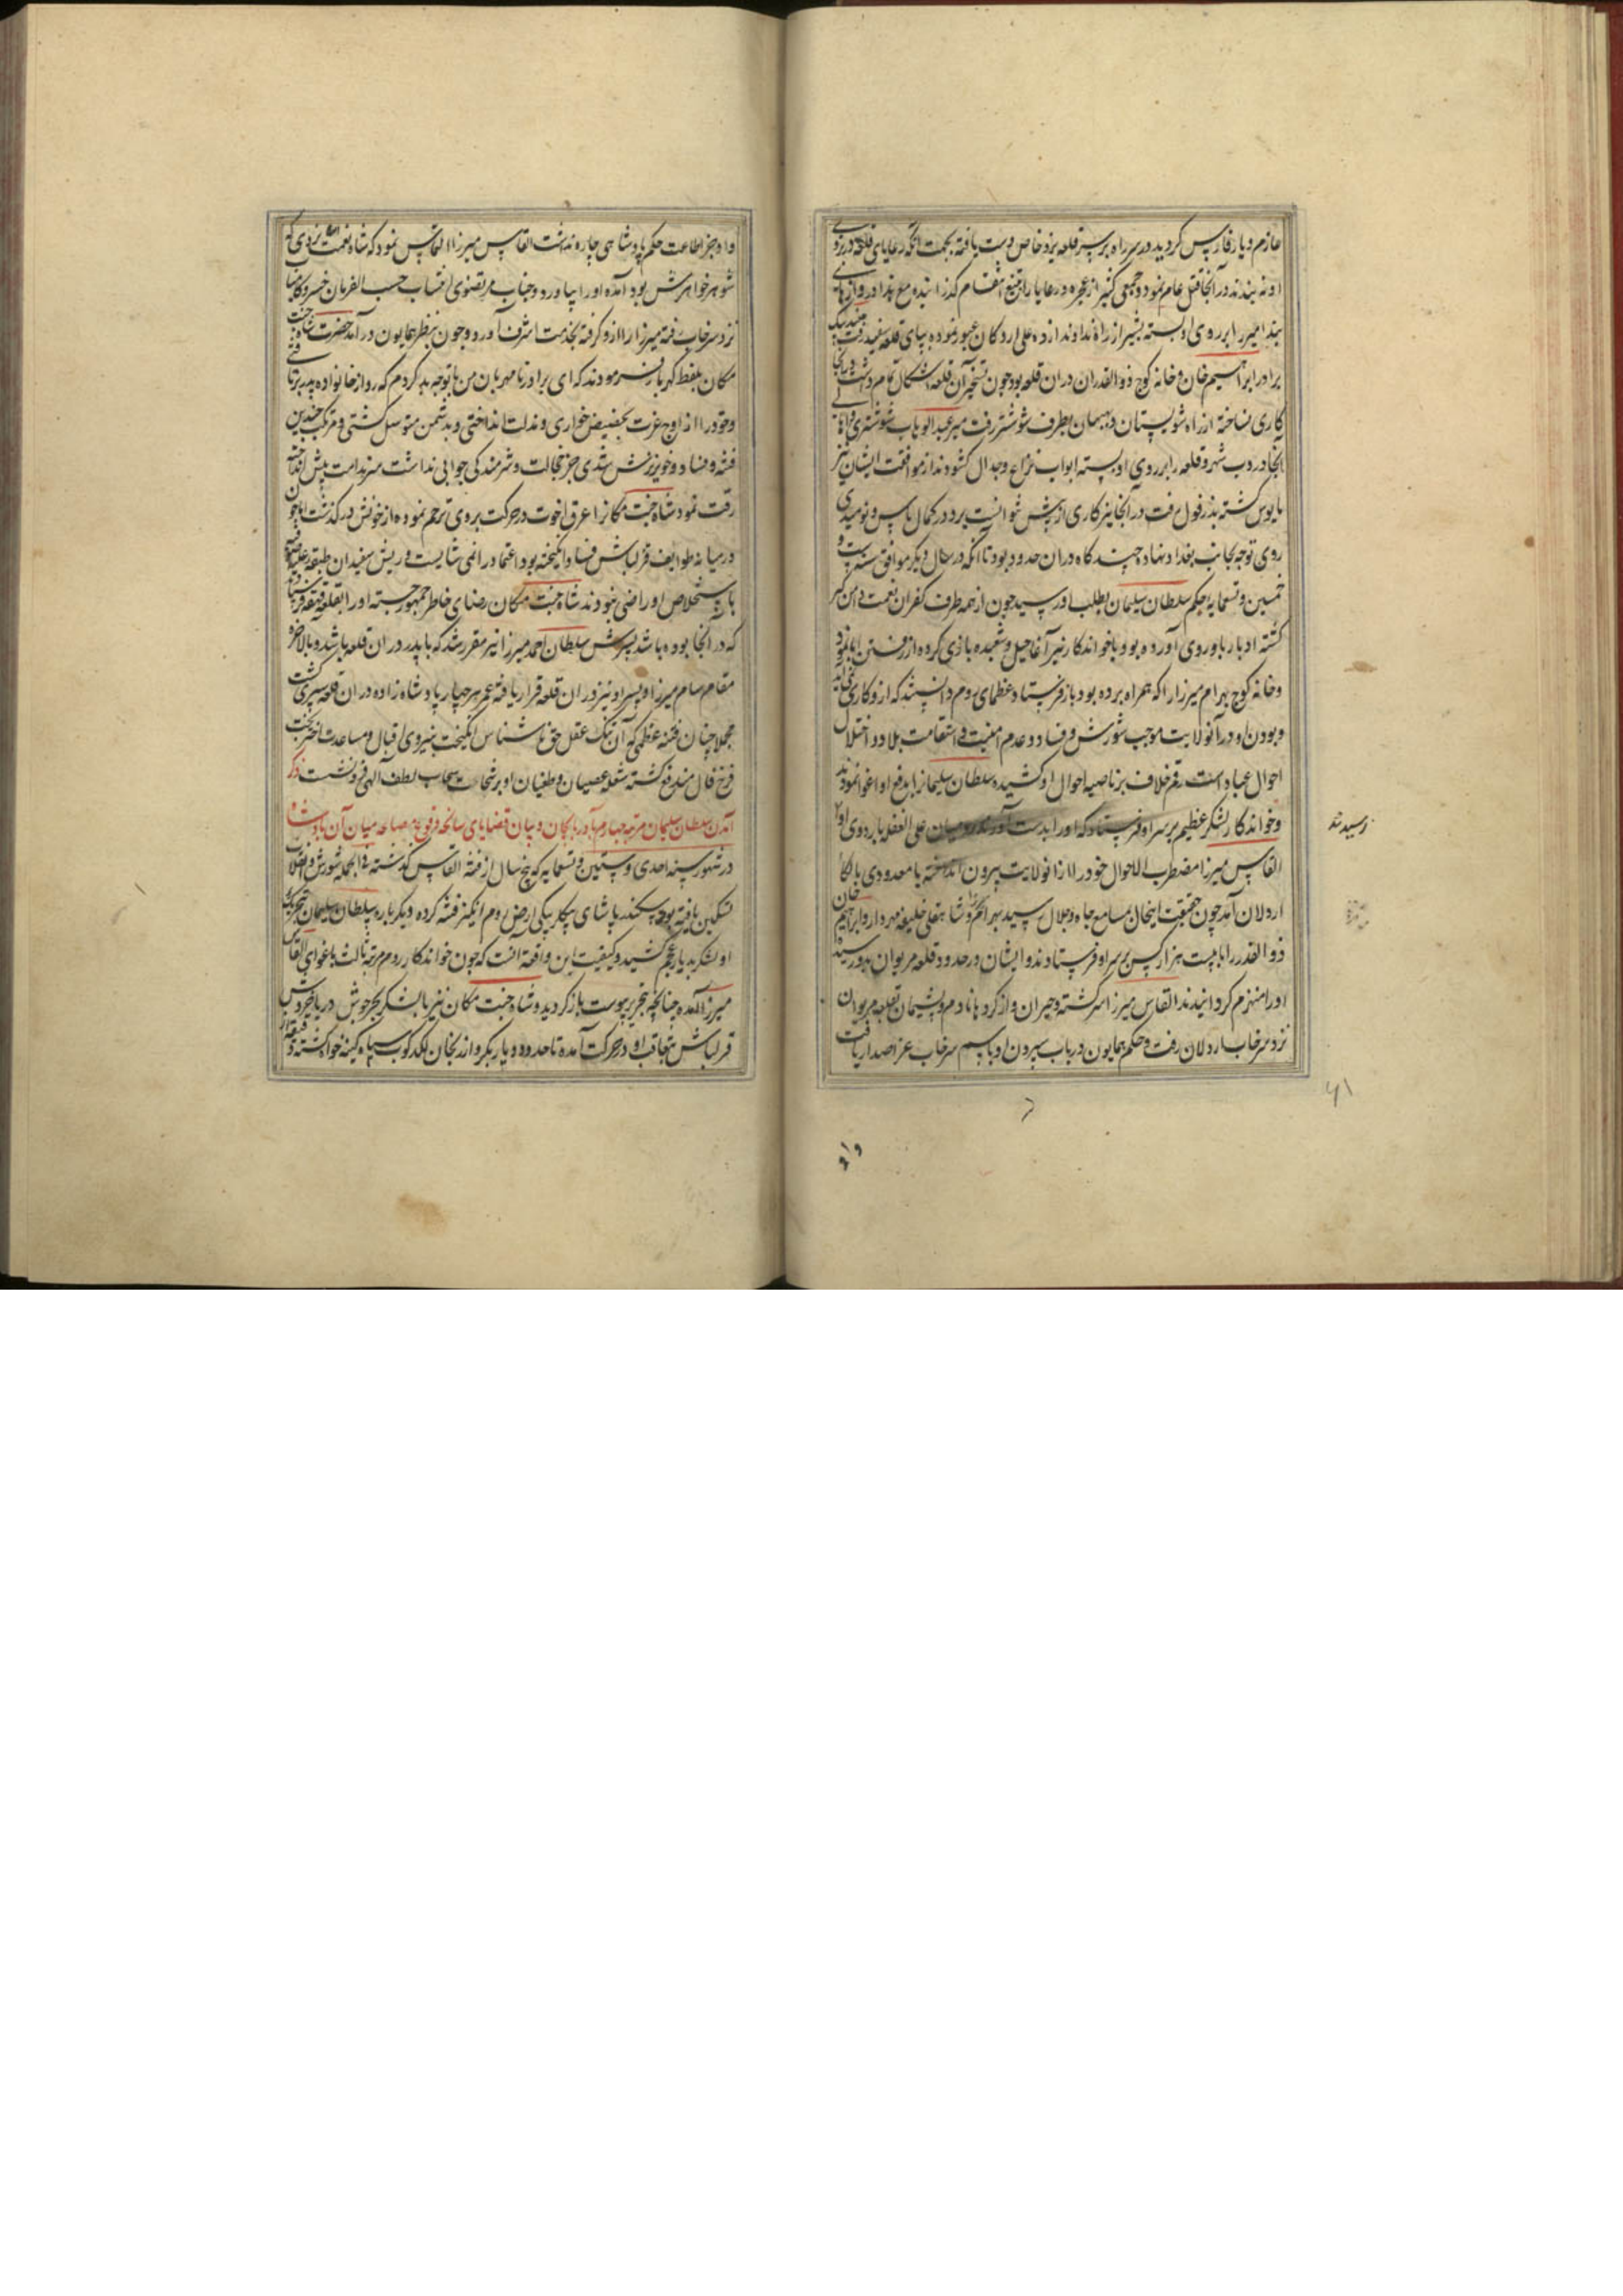 عازم دیار فارس گردید در سر راه بر سر قلعه یزدخاص دست یافته بجهت آنکه رعایای قلعه در بروی
او نه بندند در آنجا قتل عام نمود و جمعی کثیر از عجزه و رعایا را بتیغ انتقام گذرانیده مع هذا دروازهای
میرزا بر روی او بسته بشیراز راه ندادند از ده علی اردکان عبور نموده بپای قلعه سفید رفت
برادر ابراهیم خان و خانه کوچ ذوالقدران دران قلعه بود چون تسخیر آن قلعه اشکال تمام داشت
کاری نساخته از راه شولستان و بهبهان بطرف شوشتر رفت میر عبدالوهاب شوشتری
آنجا دروب شهر و قلعه را بر روی او بسته ابواب نزاع و جدال گشودند از موافقت ایشان نیز
مایوس گشته بدزفول رفت در آنجا نیز کاری از پیش نتوانست برد در کمال یاس و نومیدی
روی توجه بجانب بغداد نهاده چند گاه دران حدود بود تا آنکه در سال دیگر موافق سنه ست و
خمسین و تسعمایه حکم سلطان سلیمان بطلب او رسید چون از همه طرف کفران نعمت دامن گیر
گشته ادبار باو روی آورده بود با خواندکار نیز آغاز حیل و شعبده بازی کرده از رفتن ابا نمود
و خانه کوچ بهرام میرزا را که همراه برده بود باز فرستاد عظمای روم دانستند که ازو کاری نمی‌آید
و بودن او در آنولایت موجب شورش و فساد و عدم امنیت و استقامت بلاد و اختلال
احوال عباد است رقم خلاف بر ناصیه احوال او کشیده سلطان سلیمانرا بدفع او اغوا نمودند
و خواندکار لشکر عظیم بر سر او فرستاد که او را بدست آورند رومیان علی الغفله باردوی او
رسیدند
القاس میرزا مضطرب الاحوال خود را از آنولایت بیرون انداخته با معدودی بالکا
اردلان آمد چون حقیقت اینحال بمسامع جاه و جلال رسید بهرام میرزا و شاهقلی خلیفه مهردار و ابراهیم خان
ذوالقدر را با بیست هزار کس بر سر او فرستادند و ایشان در حدود قلعه مریوان بدو رسیده
او را منهزم گردانیدند القاس میرزا سرگشته و حیران و از کردها نادم و پشیمان بقلعه مریوان
نزد سرخاب اردلان رفت و حکم همایون در باب سپردن او باسم سرخاب عز اصدار یافت
۶۱
و او
و او جز اطاعت حکم پادشاهی چاره نداشت القاس میرزا التماس نمود که شاه نعمت الله یزدی که
شوهر خواهرش بود آمده او را بیاورد و جناب مرتضوی انتساب حسب الفرمان خسرو
نزد سرخاب رفته میرزا را ازو گرفته بخدمت اشرف آورد و چون بنظر همایون در آمد حضرت شاه جنت
مکان بلفظ گهربار فرمودند که ای برادر نامهربان من با تو چه بد کردم که رو از خانواده پدر بر تافتی
و خود را از اوج عزت بحضیض خواری و مذلت انداختی و بدشمن متوسل گشتی و مرتکب چندین
فتنه و فساد و خونریزش شدی جز خجالت و شرمندگی جوابی نداشت سر ندامت پیش انداخته
رقت نمود شاه جنت مکانرا عرق اخوت در حرکت بر وی ترحم نموده از خونش در گذشت اما چون
درمیانه طوایف قزلباش فساد انگیخته بود اعتماد را نمی شایست و ریش سفیدان طبقه علیه
باستخلاص او راضی نبودند شاه جنت مکان رضای خاطر جمهور جسته او را بقلعه قهقهه فرستادند
که در آنجا بوده باشد پسرش سلطان احمد میرزا نیز مقرر شد که با پدر در ان قلعه باشد و بالاخره
مقام سام میرزا و پسر او نیز در ان قلعه قرار یافته عمر هر چهار پادشاه زاده در ان قلعه سپری گشت
مجملا چنان فتنه عظمی که آن تنک عقل حق ناشناس انگیخت بنیروی اقبال و مساعدت اختر بخت
فرخ فال مندفع گشته شعله عصیان و طغیان او برشحات سحاب لطف الهی فرو نشست ذکر
آمدن سلطان سلیمان مرتبه چهارم بآذربایجان و بیان قضایای سانحه و وقوع مصالحه میان آن پادشاه
در شهور سنه احدی و ستین و تسعمایه که پنج سال از فتنه القاس گذشته فی الجمله شورش و انقلاب
تسکین یافته بود اسکندر پاشای بیگلربیگی ارض روم انگیز فتنه کرده دیگر باره سلطان سلیمان بتحریک
او لشکر بدیار عجم کشید و کیفیت این واقعه آنست که چون خواندکار روم مرتبه ثالث باغوای القاس
میرزا آمده چنانچه بتحریر پیوست باز گردید و شاه جنت مکان نیز با لشکر بحر جوش دریا خروش
قزلباش بتعاقب او در حرکت آمده تا حدود دیاربکر و ارزنجان لکدکوب سپاه کینه خواه گشته